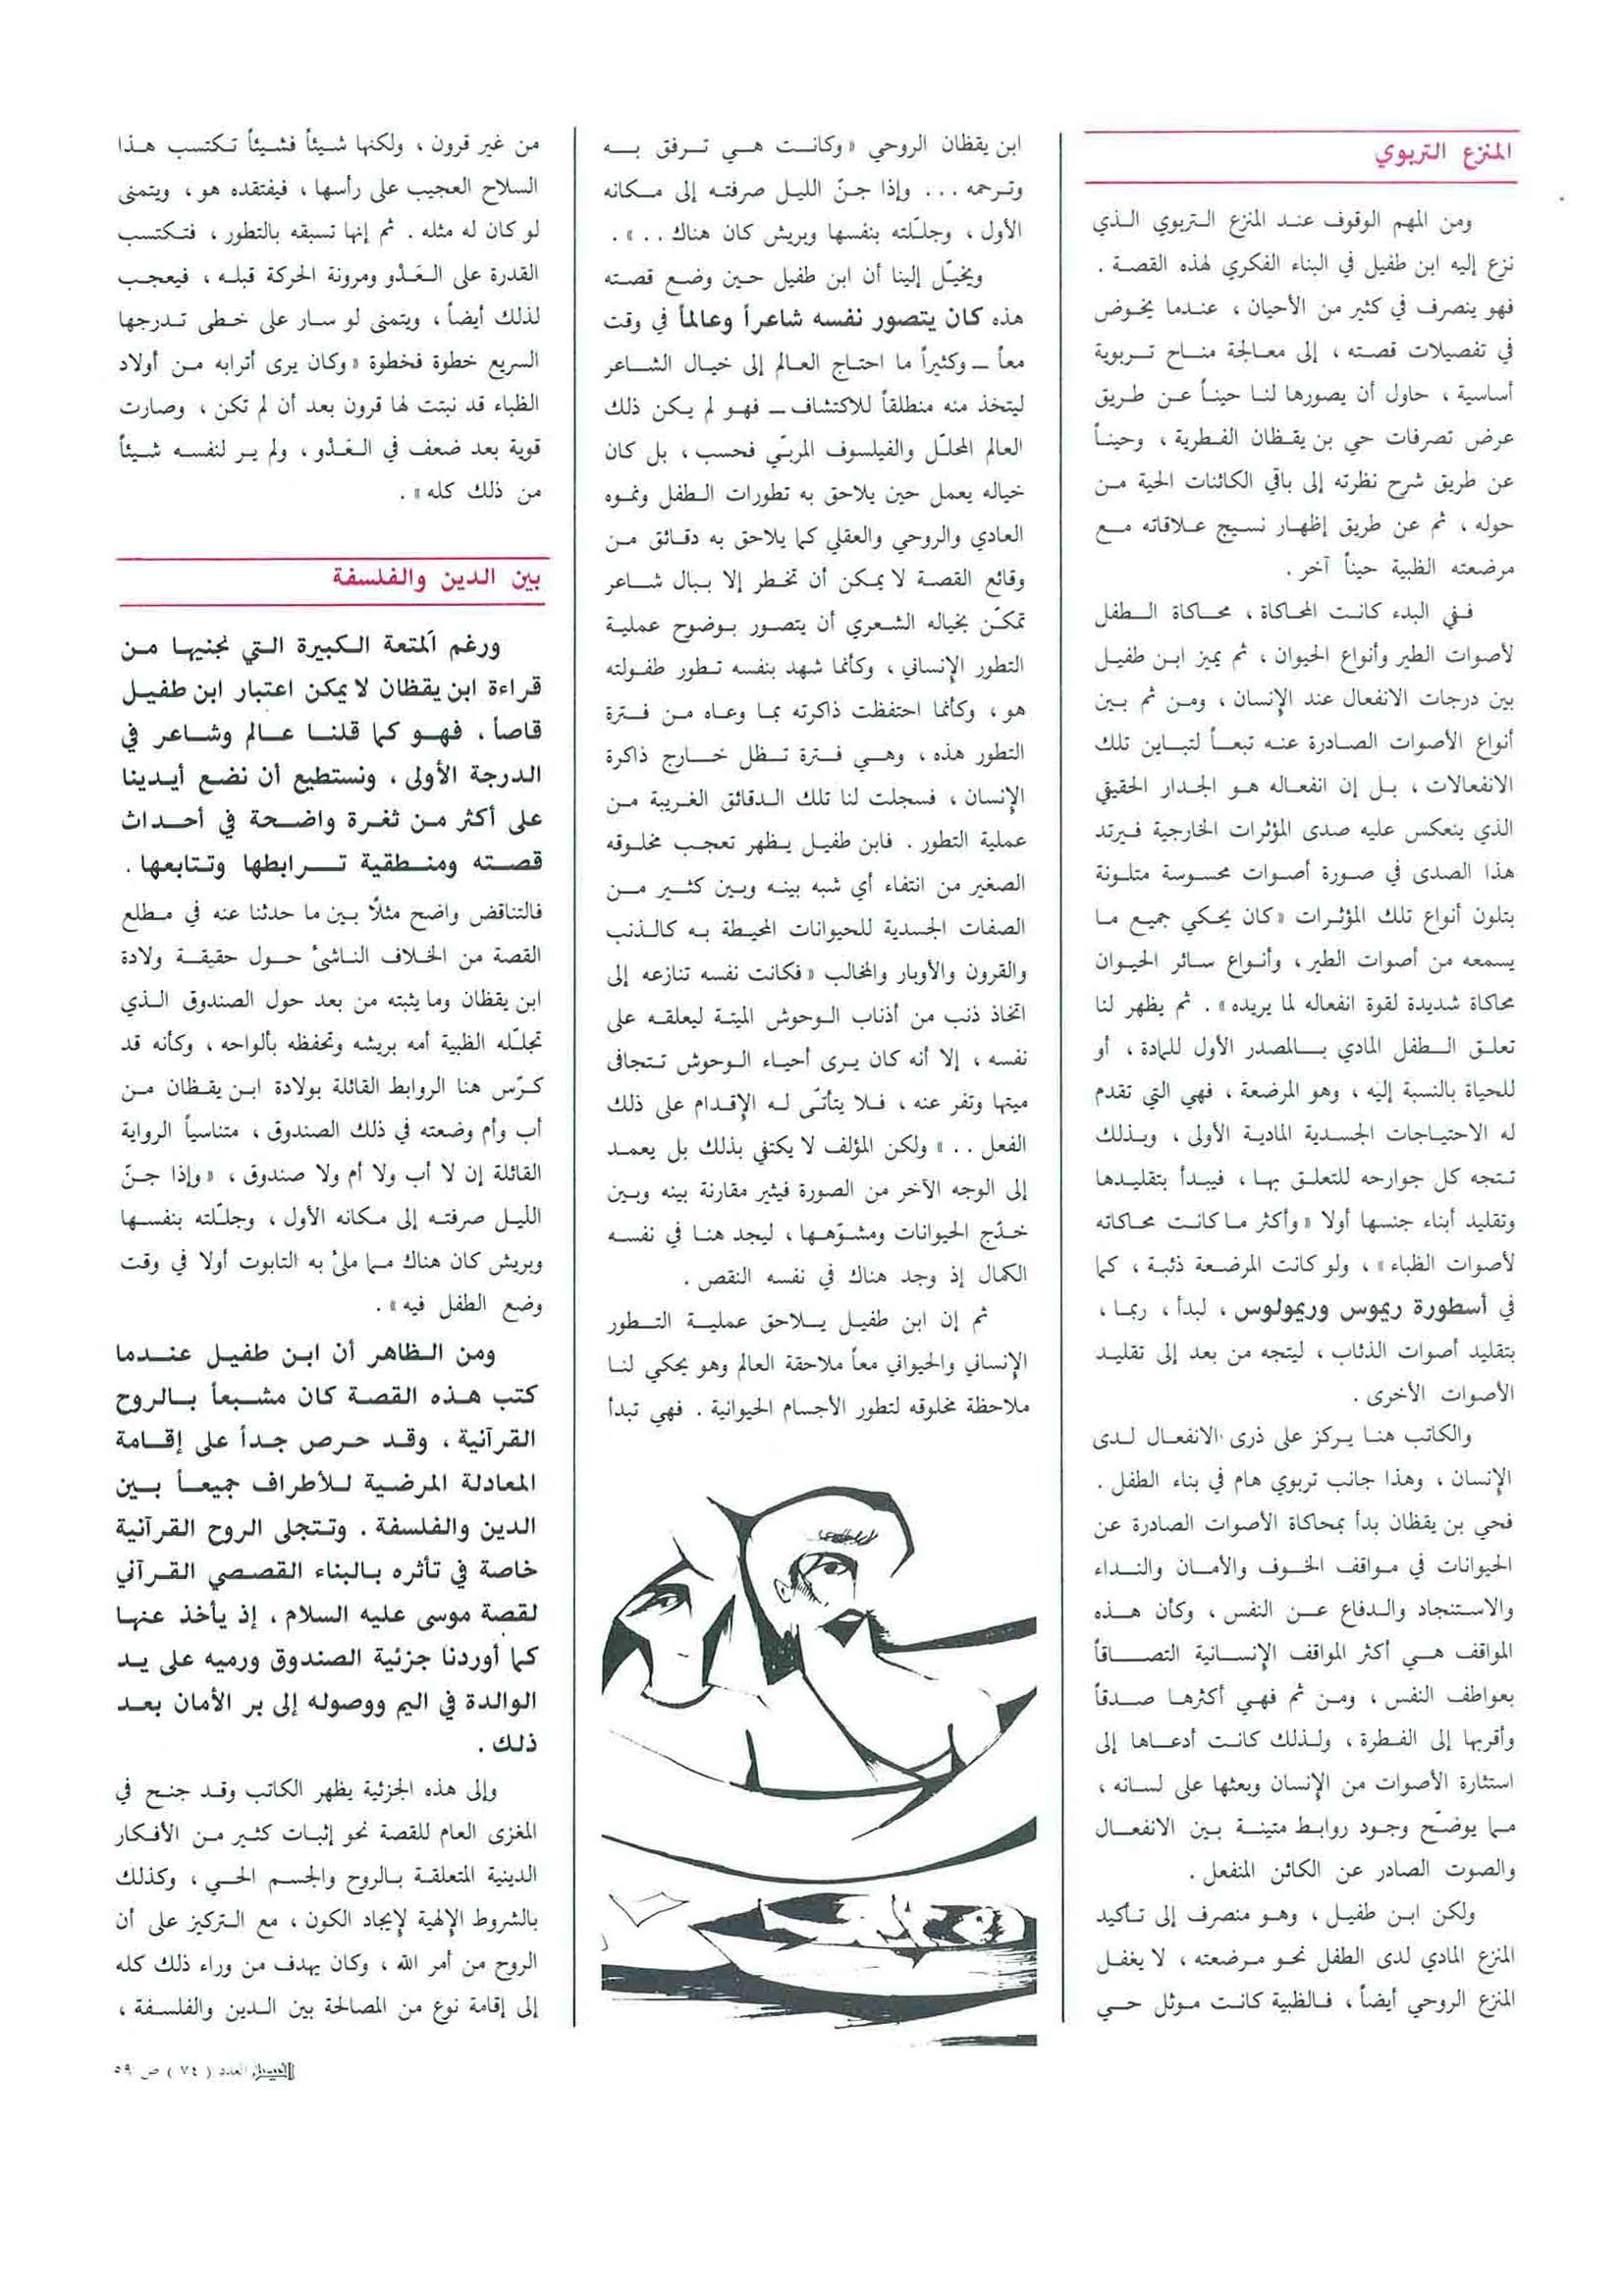 المنزع التربوي
ومن المهم الوقوف عند المنزع التربوي الذي
نزع إليه ابن طفيل في البناء الفكري لهذه القصة .
فهو ينصرف في كثير من الأحيان ، عندما يخوض
في تفصيلات قصته ، إلى معالجة مناح تربوية
أساسية ، حاول أن يصورها لنا حيناً عن طريق
عرض تصرفات حي بن يقظان الفطرية ، وحيناً
عن طريق شرح نظرته إلى باقي الكائنات الحية من
حوله ، ثم عن طريق إظهار نسيج علاقاته مع
مرضعته الظبية حيناً آخر .
ففي البدء كانت المحاكاة ، محاكاة الطفل
لأصوات الطير وأنواع الحيوان ، ثم يميز ابن طفيل
بين درجات الانفعال عند الإنسان ، ومن ثم بين
أنواع الأصوات الصادرة عنه تبعاً لتباين تلك
الانفعالات ، بل إن انفعاله هو الجدار الحقيقي
الذي ينعكس عليه صدى المؤثرات الخارجية فيرتد
هذا الصدى في صورة أصوات محسوسة متلونة
بتلون أنواع تلك المؤثرات « كان يحكي جميع ما
يسمعه من أصوات الطير ، وأنواع سائر الحيوان
محاكاة شديدة لقوة انفعاله لما يريده » . ثم يظهر لنا
تعلق الطفل المادي بالمصدر الأول للمادة ، أو
للحياة بالنسبة إليه ، وهو المرضعة ، فهي التي تقدم
له الاحتياجات الجسدية المادية الأولى ، وبذلك
تتجه كل جوارحه للتعلق بها ، فيبدأ بتقليدها
وتقليد أبناء جنسها أولا « وأكثر ما كانت محاكاته
لأصوات الظباء » ، ولو كانت المرضعة ذئبة ، كما
في أسطورة ريموس وريمولوس ، لبدأ ، ربما ،
بتقليد أصوات الذئاب ، ليتجه من بعد إلى تقليد
الأصوات الأخرى .
والكاتب هنا يركز على ذرى الانفعال لدى
الإنسان ، وهذا جانب تربوي هام في بناء الطفل .
فحي بن يقظان بدأ بمحاكاة الأصوات الصادرة عن
الحيوانات في مواقف الخوف والأمان والنداء
والاستنجاد والدفاع عن النفس ، وكأن هذه
المواقف هي أكثر المواقف الإنسانية التصاقاً
بعواطف النفس ، ومن ثم فهي أكثرها صدقاً
وأقربها إلى الفطرة ، ولذلك كانت أدعاها إلى
استثارة الأصوات من الإنسان وبعثها على لسانه ،
مما يوضّح وجود روابط متينة بين الانفعال
والصوت الصادر عن الكائن المنفعل .
ولكن ابن طفيل ، وهو منصرف إلى تأكيد
المنزع المادي لدى الطفل نحو مرضعته ، لا يغفل
المنزع الروحي أيضاً ، فالظبية كانت موئل حي
ابن يقظان الروحي « وكانت هي ترفق به
وترحمه ... وإذا جنّ الليل صرفته إلى مكانه
الأول ، وجلّلته بنفسها وبريش كان هناك .. » .
ويخيّل إلينا أن ابن طفيل حين وضع قصته
هذه كان يتصور نفسه شاعراً وعالماً في وقت
معاً ــ وكثيراً ما احتاج العالم إلى خيال الشاعر
ليتخذ منه منطلقاً للاكتشاف ــ فهو لم يكن ذلك
العالم المحلّل والفيلسوف المربّي فحسب ، بل كان
خياله يعمل حين يلاحق به تطورات الطفل ونموه
العادي والروحي والعقلي كما يلاحق به دقائق من
وقائع القصة لا يمكن أن تخطر إلا ببال شاعر
تمكّن بخياله الشعري أن يتصور بوضوح عملية
التطور الإنساني ، وكأنما شهد بنفسه تطور طفولته
هو ، وكأنما احتفظت ذاكرته بما وعاه من فترة
التطور هذه ، وهي فترة تظل خارج ذاكرة
الإنسان ، فسجلت لنا تلك الدقائق الغريبة من
عملية التطور . فابن طفيل يظهر تعجب مخلوقه
الصغير من انتفاء أي شبه بينه وبين كثير من
الصفات الجسدية للحيوانات المحيطة به كالذنب
والقرون والأوبار والمخالب « فكانت نفسه تنازعه إلى
اتخاذ ذنب من أذناب الوحوش الميتة ليعلقه على
نفسه ، إلا أنه كان يرى أحياء الوحوش تتجافى
ميتها وتفر عنه ، فلا يتأتّى له الإقدام على ذلك
الفعل .. » ولكن المؤلف لا يكتفي بذلك بل يعمد
إلى الوجه الآخر من الصورة فيثير مقارنة بينه وبين
خدّج الحيوانات ومشوّهها ، ليجد هنا في نفسه
الكمال إذ وجد هناك في نفسه النقص .
ثم إن ابن طفيل يلاحق عملية التطور
الإنساني والحيواني معاً ملاحقة العالم وهو يحكي لنا
ملاحظة مخلوقه لتطور الأجسام الحيوانية . فهي تبدأ
من غير قرون ، ولكنها شيئاً فشيئاً تكتسب هذا
السلاح العجيب على رأسها ، فيفتقده هو ، ويتمنى
لو كان له مثله . ثم إنها تسبقه بالتطور ، فتكتسب
القدرة على العَدْو ومرونة الحركة قبله ، فيعجب
لذلك أيضاً ، ويتمنى لو سار على خطى تدرجها
السريع خطوة فخطوة « وكان يرى أترابه من أولاد
الظباء قد نبتت لها قرون بعد أن لم تكن ، وصارت
قوية بعد ضعف في العَدْو ، ولم ير لنفسه شيئاً
من ذلك كله » .
بين الدين والفلسفة
ورغم المتعة الكبيرة التي نجنيها من
قراءة ابن يقظان لا يمكن اعتبار ابن طفيل
قاصاً ، فهو كما قلنا عالم وشاعر في
الدرجة الأولى ، ونستطيع أن نضع أيدينا
على أكثر من ثغرة واضحة في أحداث
قصته ومنطقية ترابطها وتتابعها .
فالتناقض واضح مثلاً بين ما حدثنا عنه في مطلع
القصة من الخلاف الناشئ حول حقيقة ولادة
ابن يقظان وما يثبته من بعد حول الصندوق الذي
تجلّله الظبية أمه بريشه وتحفظه بألواحه ، وكأنه قد
كرّس هنا الروابط القائلة بولادة ابن يقظان من
أب وأم وضعته في ذلك الصندوق ، متناسياً الرواية
القائلة إن لا أب ولا أم ولا صندوق ، « وإذا جنّ
الليل صرفته إلى مكانه الأول ، وجلّلته بنفسها
وبريش كان هناك مما ملئ به التابوت أولا في وقت
وضع الطفل فيه » .
ومن الظاهر أن ابن طفيل عندما
كتب هذه القصة كان مشبعاً بالروح
القرآنية ، وقد حرص جداً على إقامة
المعادلة المرضية للأطراف جميعاً بين
الدين والفلسفة . وتتجلى الروح القرآنية
خاصة في تأثره بالبناء القصصي القرآني
لقصة موسى عليه السلام ، إذ يأخذ عنها
كما أوردنا جزئية الصندوق ورميه على يد
الوالدة في اليم ووصوله إلى بر الأمان بعد
ذلك .
وإلى هذه الجزئية يظهر الكاتب وقد جنح في
المغزى العام للقصة نحو إثبات كثير من الأفكار
الدينية المتعلقة بالروح والجسم الحي ، وكذلك
بالشروط الإلهية لإيجاد الكون ، مع التركيز على أن
الروح من أمر الله ، وكان يهدف من وراء ذلك كله
إلى إقامة نوع من المصالحة بين الدين والفلسفة ،
الفيصل العدد ( ٧٤ ) ص ٥٩